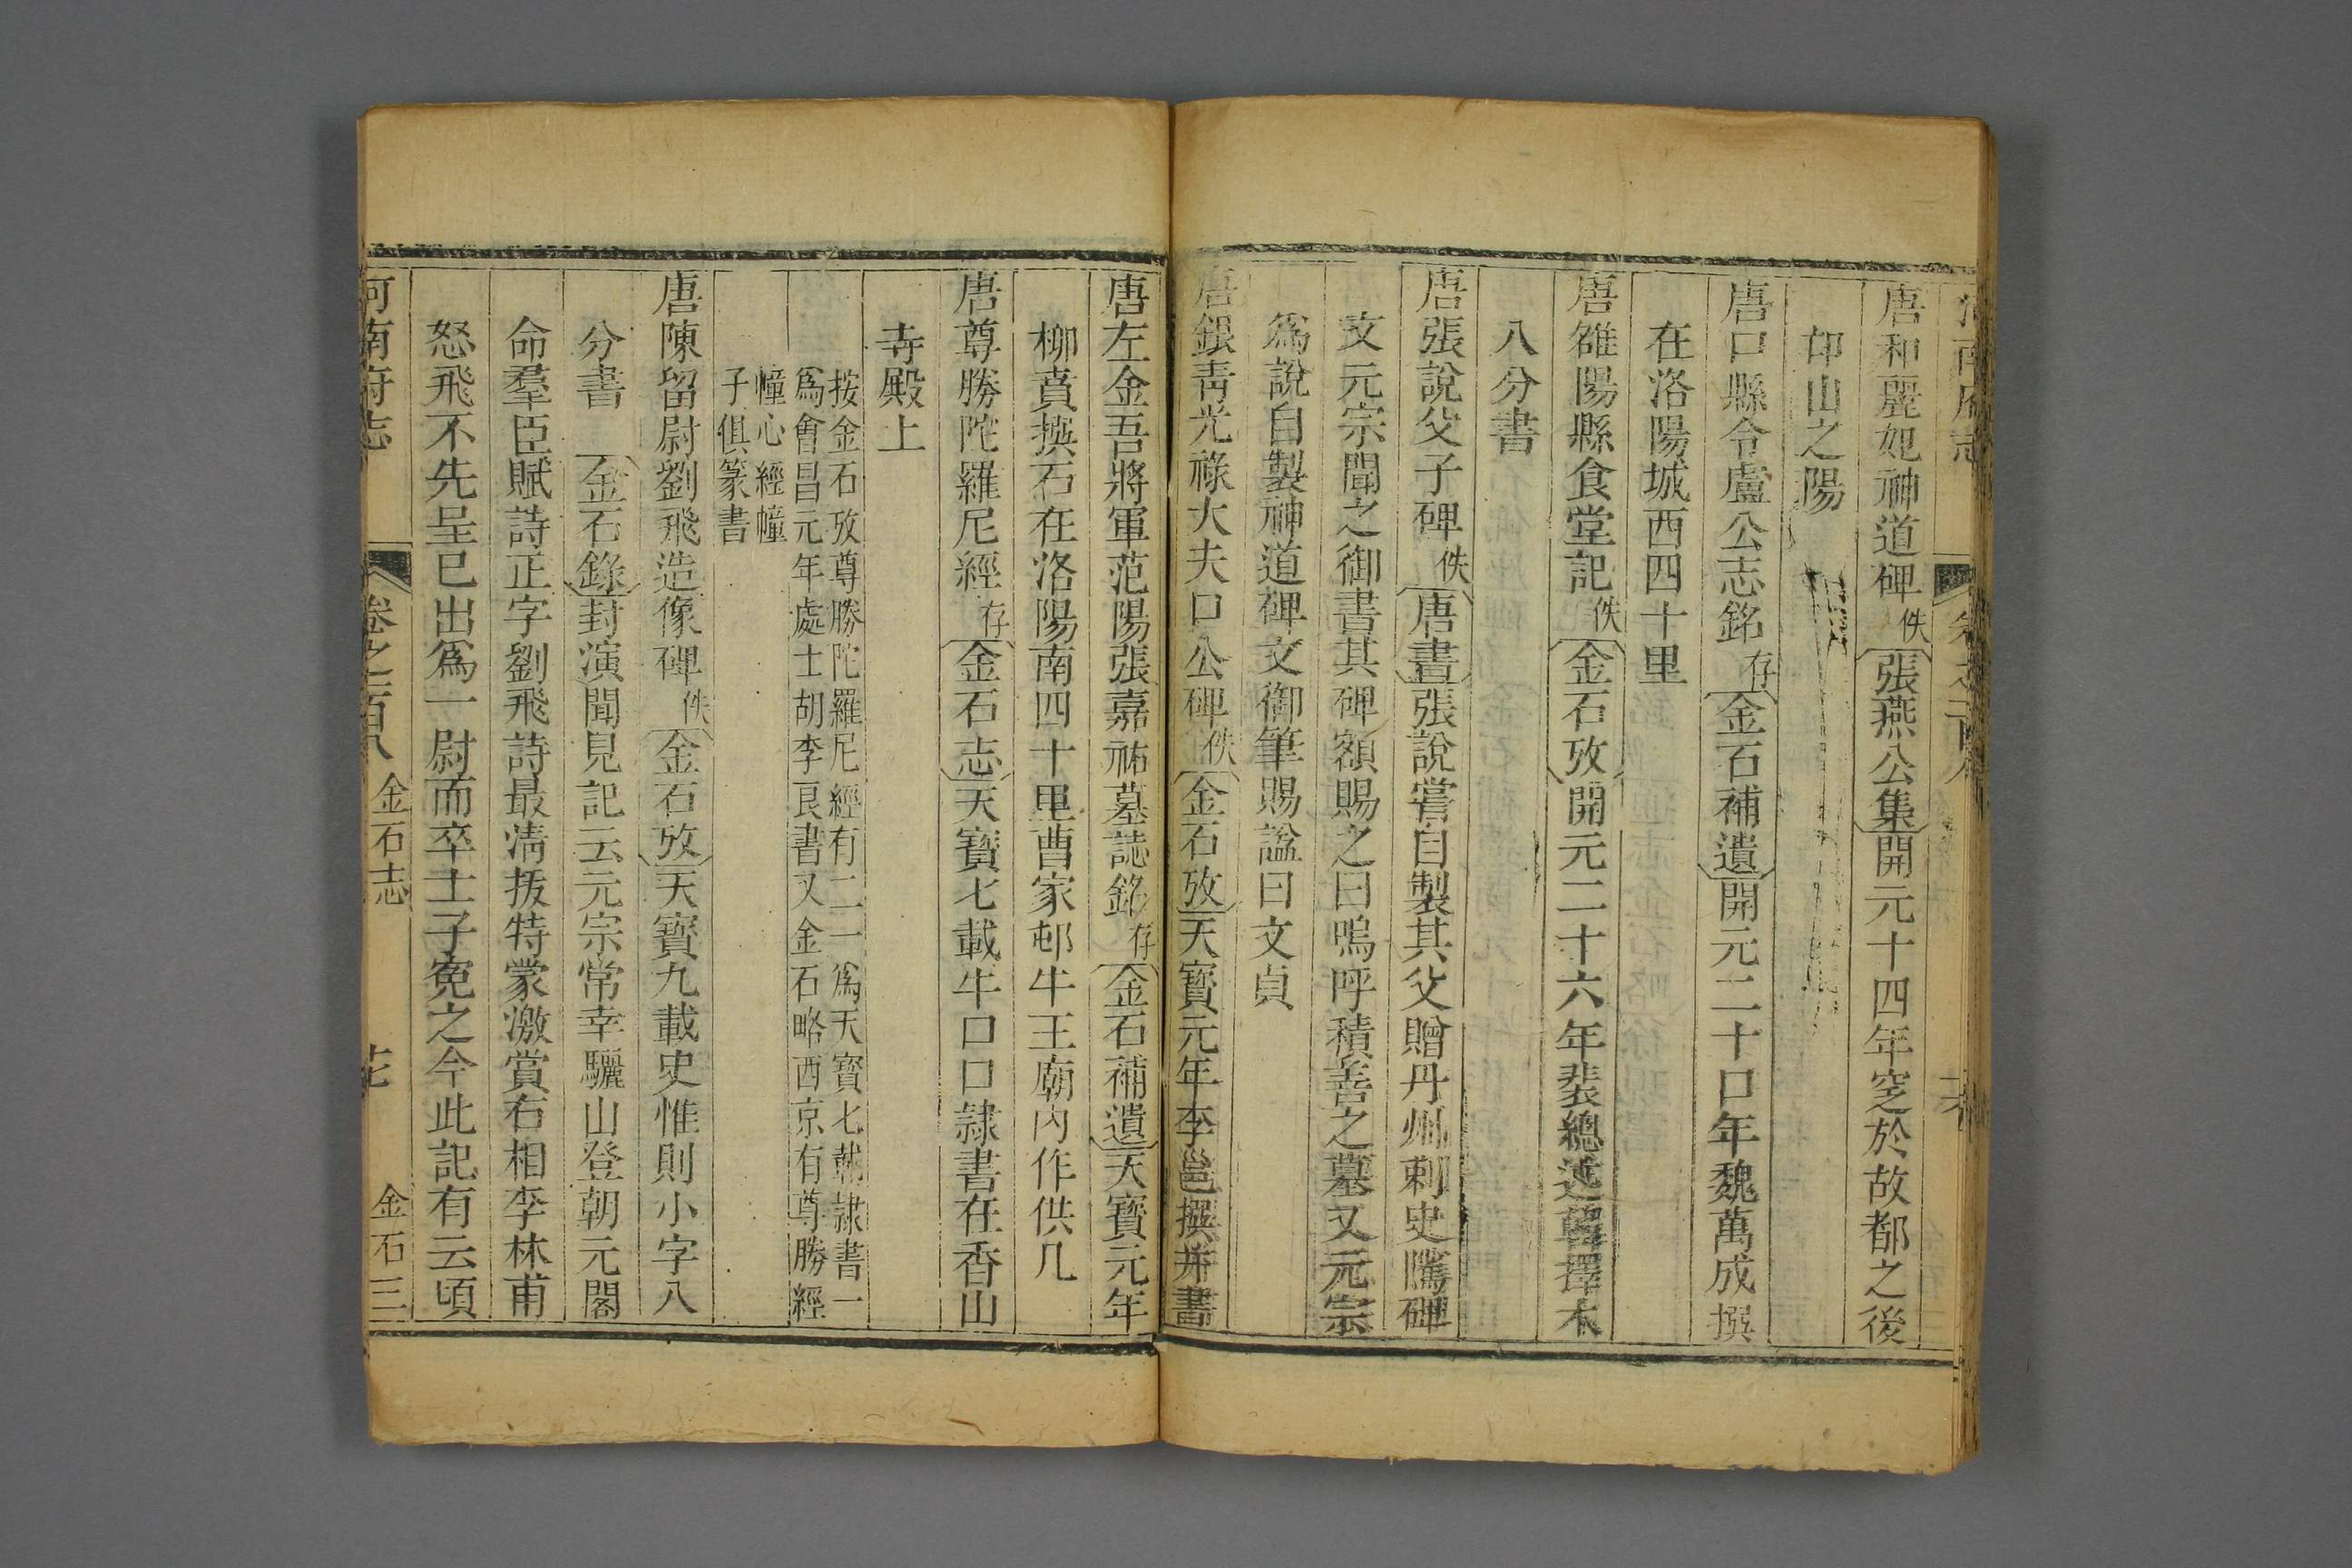 唐和麗妃神道碑佚張燕公集開元十四年窆於故都之後
邙山之陽
唐口縣令盧公志銘存金石補遺開元二十口年魏萬成撰
在洛陽城西四十里
唐雒陽縣食堂記佚金石攷開元二十六年裴總述韓擇木
八分書
唐張說父子碑佚唐書張說嘗自製其父贈丹州刺史隲碑
文元宗聞之御書其碑額賜之曰嗚呼積善之墓又元宗
爲說自製神道碑文御筆賜諡曰文貞
唐銀青光祿大夫口公碑佚金石攷天寳元年李邕撰并書
唐左金吾將軍范陽張嘉祐墓誌銘存金石補遺天寳元年
柳賁撰石在洛陽南四十里曹家邨牛王廟內作供几
唐尊勝陀羅尼經存金石志天寳七載牛口口隸書在香山
寺殿上
按金石攷尊勝陀羅尼經有二一爲天寳七載隸書一
爲會昌元年處士胡季良書又金石略西京有尊勝經
幢心經幢
子俱篆書
唐陳留尉劉飛造像碑佚金石攷天寳九載史惟則小字八
分書金石錄封演聞見記云元宗常幸驪山登朝元閣
命羣臣賦詩正字劉飛詩最清拔特蒙激賞右相李林甫
怒飛不先呈已出爲一尉而卒士子寃之今此記有云頃
河南府志 卷之一百八 金石志 金石三